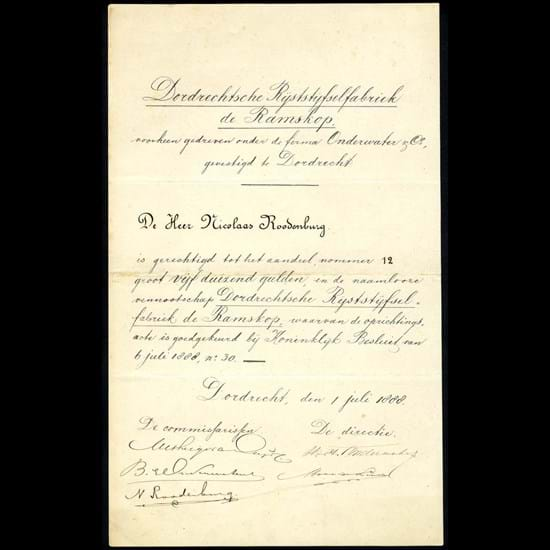 Dordrechtsche Rijststijfselfabriek
de Ramskop.
voorheen gedreven onder de firma Onderwater & Co,
gevestigd te Dordrecht
De Heer Nicolaas Roodenburg
is gerechtigd tot het aandeel nommer 12
groot vijf duizend gulden, in de naamlooze
vennootschap Dordrechtsche Rijststijfsel-
fabriek de Ramskop, waarvan de oprichtings-
acte is goedgekeurd bij Koninklijk Besluit van
6 juli 1888, no 30.
Dordrecht, den 1 juli 1888.
De commissarissen
De directie.
N. Roodenburg